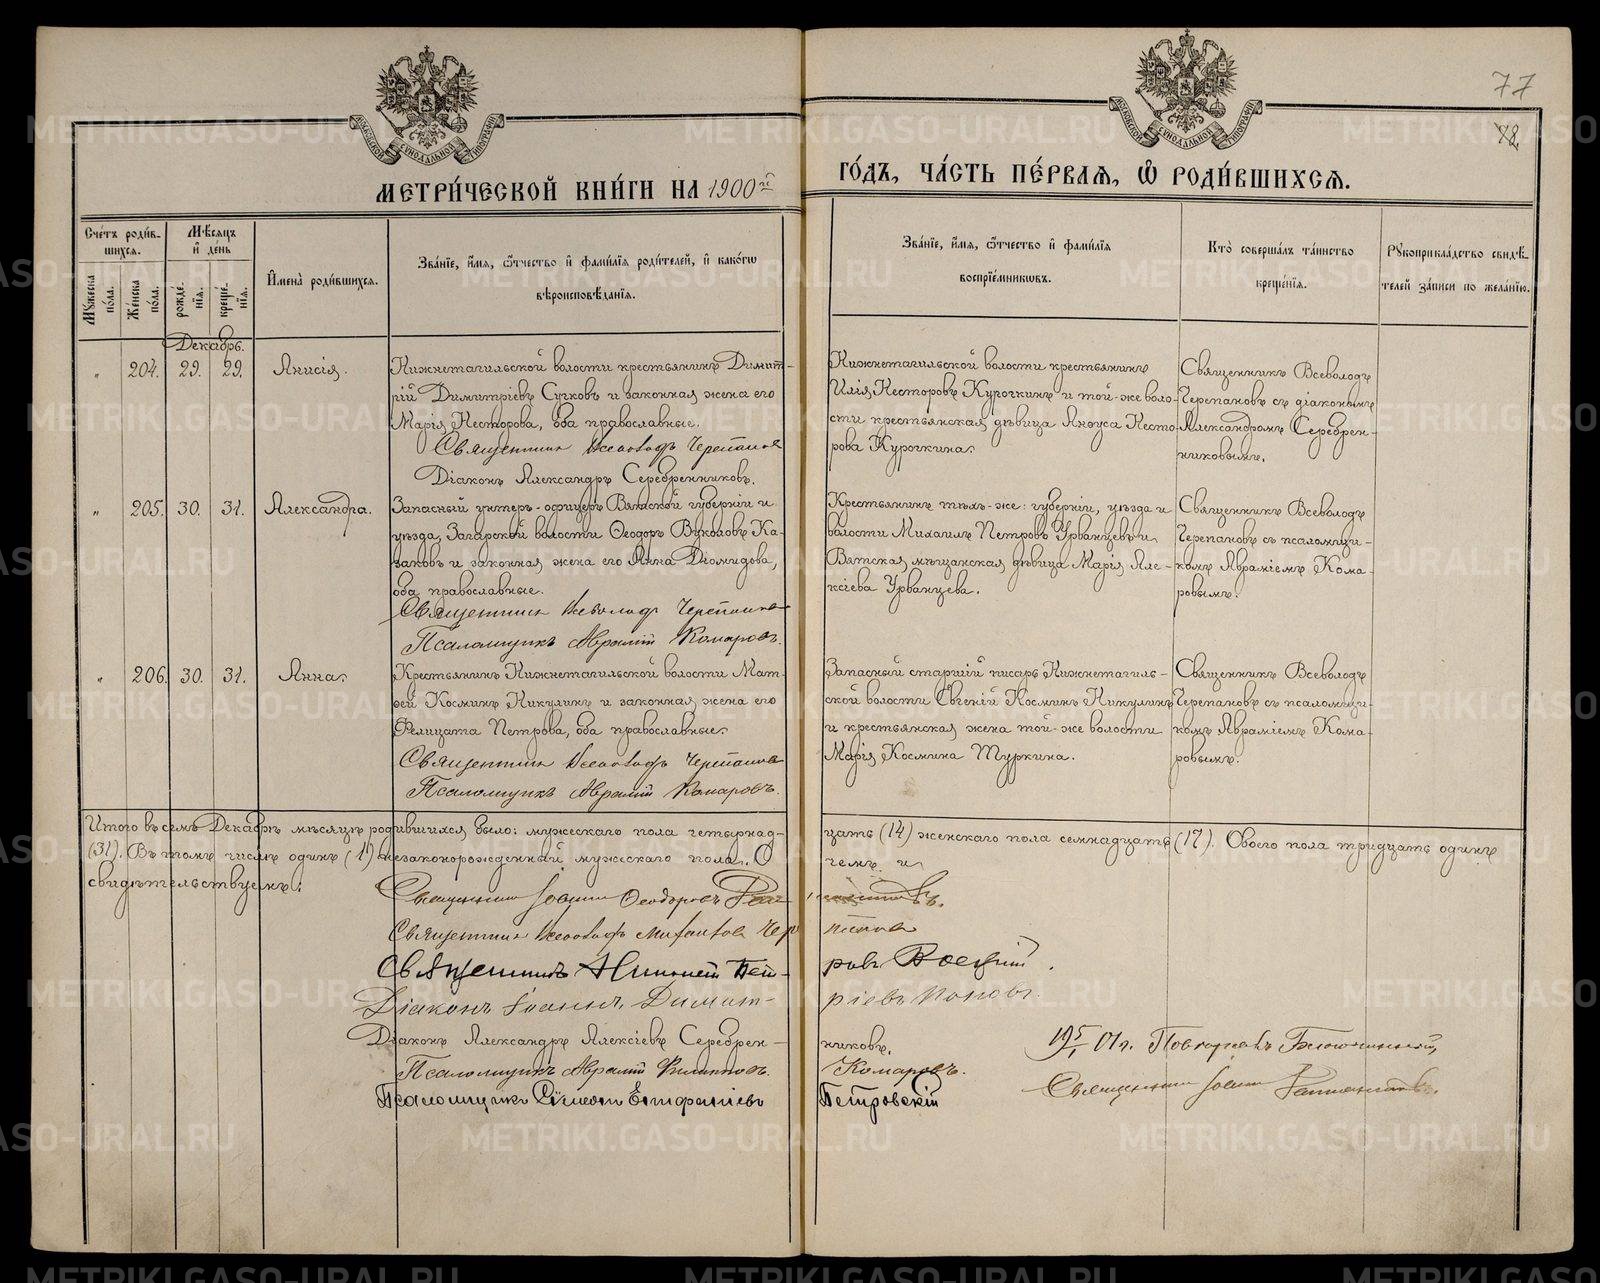 77
72
МЕТРИ́ЧЕСКОЙ КНИ́ГИ НА 1900 й
ГО́ДЪ, ЧА́СТЬ ПЕ́РВАѦ, Ѡ РОДИ́ВШИХСѦ.
Сче́тъ роди́в-
шихсѧ.
Мꙋ́жеска по́ла.
Же́нска по́ла.
Мѣ́сѧцъ
и де́нь
рожде́нїѧ.
креще́нїѧ.
И҆мена̀ роди́вшихсѧ.
Зва́нїе, и҆́мѧ, ѻ҆́тчество и҆ фами́лїѧ роди́телей, и҆ како́гѡ
вѣроисповѣ́данїѧ.
Зва́нїе, и҆́мѧ, ѻ҆́тчество и҆ фами́лїѧ
воспрїе́мникѡвъ.
Кто̀ соверша́лъ та́инство
креще́нїѧ.
Рꙋкоприкла́дство свидѣ́-
телей за́писи по жела́нїю.
Декабрь.
„ 204. 29. 29. Анисія.
Нижнетагильской волости крестьянинъ Димит-
рій Димитріевъ Сучковъ и законная жена его
Марія Несторова, оба православные.
Священникъ Всеволодъ Черепановъ
Діаконъ Александръ Серебренниковъ.
Нижнетагильской волости крестьянинъ
Илія Несторовъ Курочкинъ и той-же воло-
сти крестьянская дѣвица Анфуса Несто-
рова Курочкина.
Священникъ Всеволодъ
Черепановъ съ діакономъ
Александромъ Серебрен-
никовымъ.
„ 205. 30. 31. Александра.
Запасный унтеръ-офицеръ Вятской губерніи и
уѣзда, Загарской волости Ѳеодоръ Вуколовъ Ка-
заковъ и законная жена его Анна Діомидова,
оба православные.
Священникъ Всеволодъ Черепановъ
Псаломщикъ Авраамій Комаровъ.
Крестьянинъ тѣхъ-же: губерніи, уѣзда и
волости Михаилъ Петровъ Урванцевъ и
Вятская мѣщанская дѣвица Марія Але-
ксіева Урванцева.
Священникъ Всеволодъ
Черепановъ съ псаломщи-
комъ Авраміемъ Кома-
ровымъ.
„ 206. 30. 31. Анна.
Крестьянинъ Нижнетагильской волости Мат-
ѳей Косминъ Никулинъ и законная жена его
Фелицата Петрова, оба православные.
Священникъ Всеволодъ Черепановъ
Псаломщикъ Авраамій Комаровъ.
Запасный старшій писарь Нижнетагиль-
ской волости Евгеній Косминъ Никулинъ
и крестьянская жена той-же волости
Марія Космина Туркина.
Священникъ Всеволодъ
Черепановъ съ псаломщи-
комъ Авраміемъ Кома-
ровымъ.
Итого въ семъ Декабрѣ мѣсяцѣ родившихся было: мужескаго пола четырнад-цать (14) женскаго пола семнадцать (17). Обоего пола тридцать одинъ
(31). Въ томъ числѣ одинъ (1) незаконорожденный мужскаго пола. О чемъ и
свидѣтельствуемъ:
Священникъ Іоаннъ Ѳеодоровъ
Священникъ Всеволодъ Черепановъ
Священникъ Петровъ
Діаконъ Іоаннъ Димит-ріевъ Поповъ.
Діаконъ Александръ Алексіевъ Серебрен-никовъ.
Псаломщикъ Авраамій Филипповъ Комаровъ.
Псаломщикъ Сѵмеонъ Епифаніевъ Петровскій
Священникъ Іоаннъ